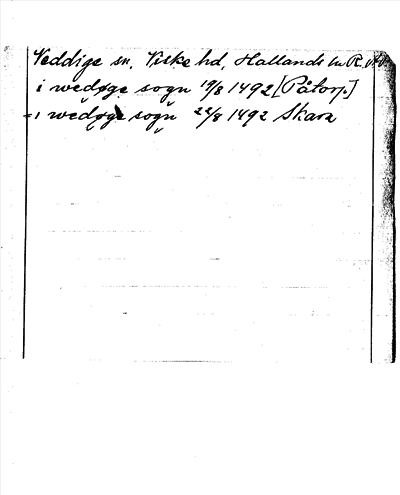 Veddige sn, Viske hd, Hallands ln R.
i wedøge sogn 19/8 1492 [Påtorp.]
i wedøge sogn 22/8 1492 Skara